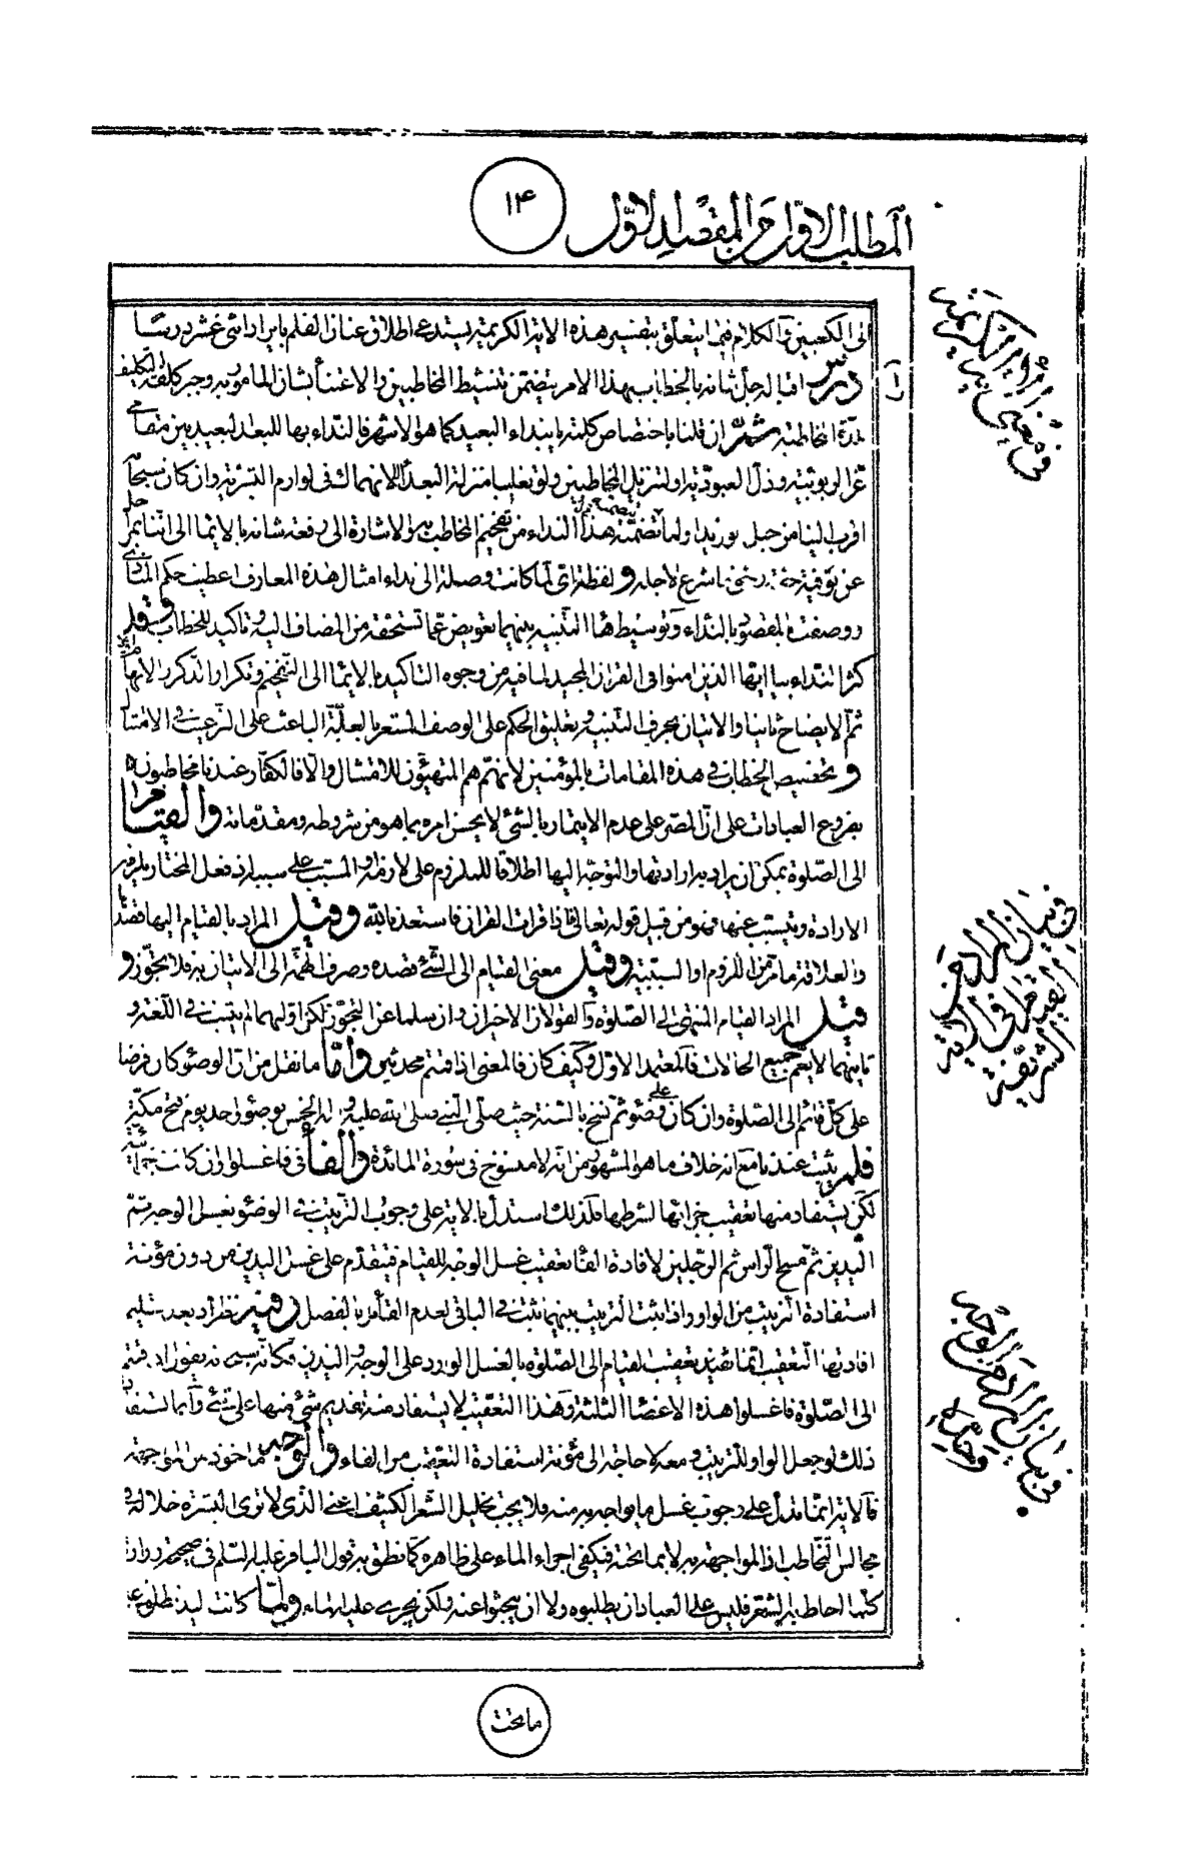 المطلب الاول من المقصد الاول
١٤
فى معنى يا ايها الآية الكريمة
الى الكعبين والكلام فيما يتعلق بتفسير هذه الاية الكريمة يستدعى اطلاق عنان القلم بايراد اثنى عشر درسا
درس اقباله جل شانه بالخطاب بهذا الامر يتضمن تنشيط المخاطبين والاعتناء بشان المامور به وجبر كلفة التكليف
بلذة المخاطبة ثم ان قلنا باختصاص كلمة يا بنداء البعيد كما هو الاشهر فالنداء بها للبعد البعيد بين مقامى
عز الربوبية وذل العبودية او لتنزيل المخاطبين ولو تغليبا منزلة البعد للانهماك فى لوازم البشرية وان كان سبحانه
اقرب الينا من حبل الوريد او لما يتضمنه هذا النداء من تفخيم المخاطب به والاشارة الى رفعة شانه بالايماء الى اننا بمراحل
عن توفية حقه وحق ما شرع لاجله ولفظة اى لما كانت وصلة الى نداء امثال هذه المعارف اعطيت حكم المنادى
ووصفت بالمقصود بالنداء وتوسيط ها التنبيه بينهما تعويض عما تستحقه من المضاف اليه وتاكيد للخطاب وقد
كثر النداء بيا ايها الذين امنوا فى القران المجيد لما فيه من وجوه التاكيد بالايماء الى التفخيم وتكرار الذكر والابهام
ثم الايضاح ثانيا والاتيان بحرف التنبيه وتعليق الحكم على الوصف المشعر بالعلية الباعث على الترغيب فى الامتثال
وتخصيص الخطاب فى هذه المقامات بالمؤمنين لانهم هم المتهيئون للامتثال والا فالكفار عندنا مخاطبون
بفروع العبادات على ان المصر على عدم الايتمار بالشئ لا يحسن امره بما هو من شروطه ومقدماته والقيام
الى الصلوة يمكن ان يراد به ارادتها والتوجه اليها اطلاقا للملزوم على لازمه او المسبب على سببه اذ فعل المختار يلزمه
الارادة ويتسبب عنها فهو من قبيل قوله تعالى فاذا قرات القران فاستعذ بالله وقيل المراد بالقيام اليها قصدها
والعلاقة ما مر من اللزوم او السببية وقيل معنى القيام الى الشئ قصده وصرف الهمة الى الاتيان به فلا تجوز و
قيل المراد القيام المنتهى الى الصلوة والقولان الاخيران وان سلما عن التجوز لكن اولهما لم يثبت فى اللغة و
ثانيهما لا يعم جميع الحالات فالمعتمد الاول وكيف كان فالمعنى اذا قمتم محدثين واما ما نقل من ان الوضوء كان فرضا
على كل قائم الى الصلوة وان كان على وضوء ثم نسخ بالسنة حيث صلى النبى صلى الله عليه واله الخمس بوضوء واحد يوم فتح مكة
فلم يثبت عندنا مع انه خلاف ما هو المشهور من انه لا منسوخ فى سورة المائدة والفاء فى فاغسلوا وان كانت جزائية
لكن يستفاد منها تعقيب جزائها لشرطها فلذلك استدل بالاية على وجوب الترتيب فى الوضوء بغسل الوجه ثم
اليدين ثم مسح الراس ثم الرجلين لافادة الفاء تعقيب غسل الوجه للقيام فيتقدم على غسل اليدين من دون مؤنة
استفادة الترتيب من الواو واذا ثبت الترتيب بينهما ثبت فى الباقى لعدم القائل بالفصل وفيه نظر اذ بعد تسليم
افادتها التعقيب انما تفيد تعقيب القيام الى الصلوة بالغسل الوارد على الوجه واليدين فكانه سبحانه يقول اذا قمتم
الى الصلوة فاغسلوا هذه الاعضاء الثلثة وهذا التعقيب لا يستفاد منه تقديم شئ منها على شئ وانما يستفاد
ذلك لو جعل الواو للترتيب ومعه لا حاجة الى مؤنة استفادة التعقيب من الفاء والوجه ماخوذ من المواجهة
فالاية انما تدل على وجوب غسل ما يواجه به منه فلا يجب تخليل الشعر الكثيف اعنى الذى لا ترى البشرة خلاله فى
مجالس التخاطب اذ المواجهة به لا بما تحته فيكفى اجراء الماء على ظاهره كما نطق به قول الباقر عليه السلم فى صحيحة زرارة
كلما احاط به الشعر فليس على العباد ان يطلبوه ولا ان يبحثوا عنه ولكن يجرى عليه الماء ولما كانت اليد تطلق على
فى بيان المراد من القيام فى الاية الشريفة
فى بيان المراد من الوجه وحده
ما تحت